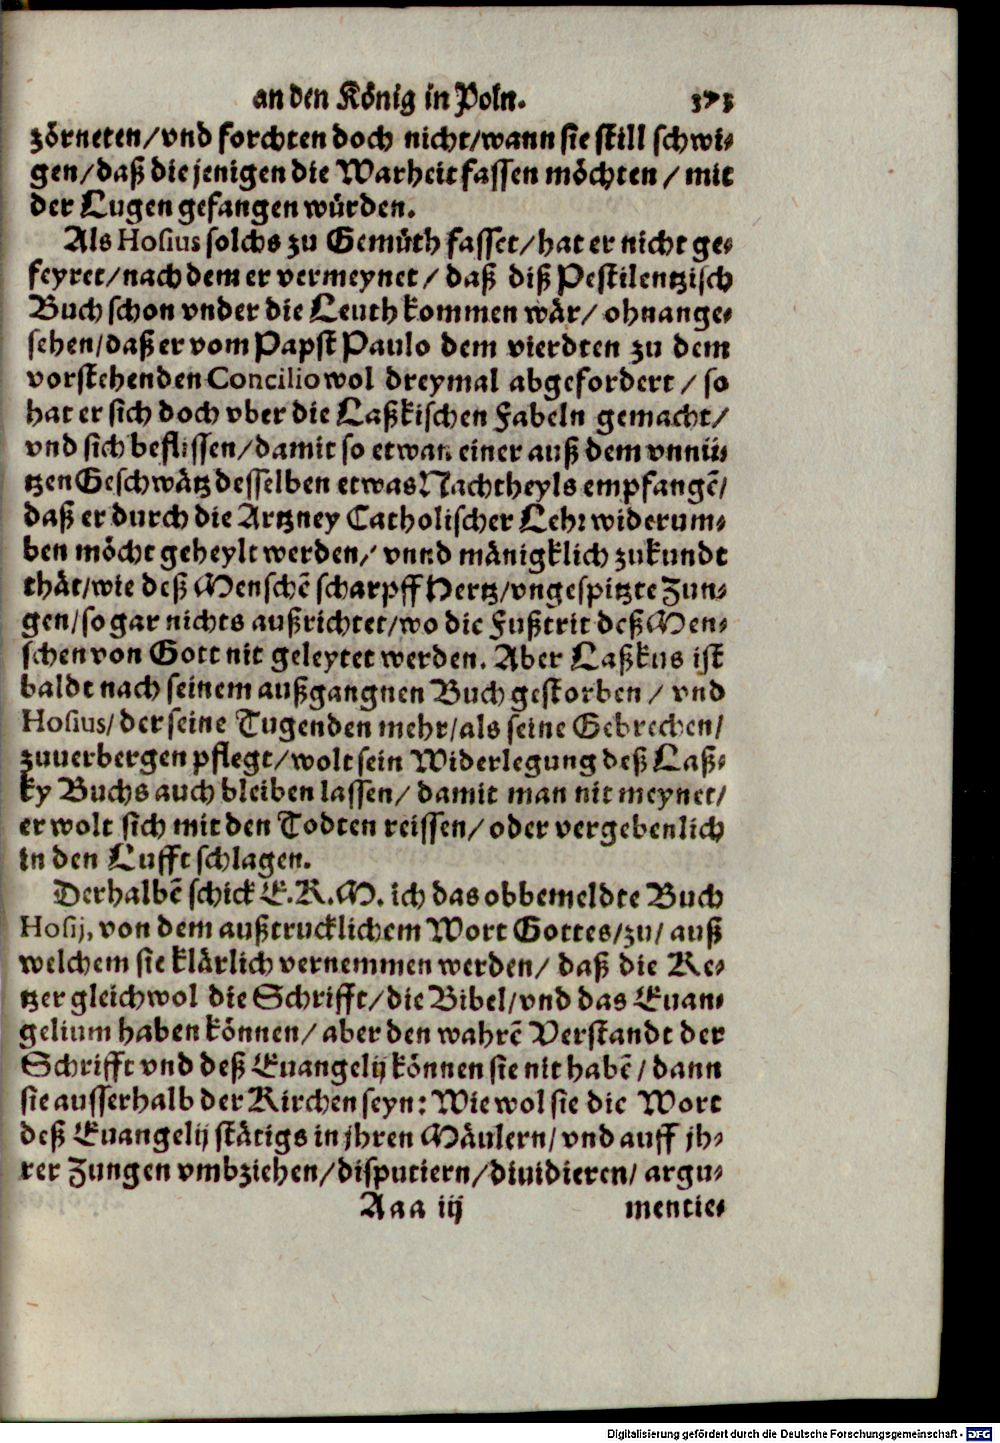 an den König in Poln. 373
zörneten/vnd forchten doch nicht/wann sie still schwi-
gen/daß die jenigen die Warheit fassen möchten/mit
der Lugen gefangen würden.
Als Hosius solchs zu Gemüth fasset/hat er nicht ge-
feyret/nach dem er vermeynet/daß diß Pestilentzisch
Buch schon vnder die Leuth kommen wär/ohnange-
sehen/daß er vom Papst Paulo dem vierdten zu dem
vorstehenden Concilio wol dreymal abgefordert/so
hat er sich doch vber die Laßkischen Fabeln gemacht/
vnd sich beflissen/damit so etwan einer auß dem vnnü-
tzen Geschwätz desselben etwas Nachtheyls empfangē/
daß er durch die Artzney Catholischer Lehr widerum-
ben möcht geheylt werden/vnnd mänigklich zu kundt
thät/wie deß Menschē scharpff Hertz/vngespitzte Zun-
gen/so gar nichts außrichtet/wo die Fußtrit deß Men-
schen von Gott nit geleytet werden. Aber Laßkus ist
baldt nach seinem außgangnen Buch gestorben/vnd
Hosius/der seine Tugenden mehr/als seine Gebrechen/
zuuerbergen pflegt/wolt sein Widerlegung deß Laß-
ky Buchs auch bleiben lassen/damit man nit meynet/
er wolt sich mit den Todten reissen/oder vergebenlich
in den Lufft schlagen.
Derhalbē schick E.K.M. ich das obbemeldte Buch
Hosij, von dem außtrucklichem Wort Gottes/zu/auß
welchem sie klärlich vernemmen werden/daß die Ke-
tzer gleichwol die Schrifft/die Bibel/vnd das Euan-
gelium haben können/aber den wahrē Verstandt der
Schrifft vnd deß Euangelij können sie nit habē/dann
sie ausserhalb der Kirchen seyn: Wiewol sie die Wort
deß Euangelij stätigs in jhren Mäulern/vnd auff jh-
rer Zungen vmbziehen/disputiern/diuidieren/argu-
Aaa iij mentie-
Digitalisierung gefördert durch die Deutsche Forschungsgemeinschaft - DFG